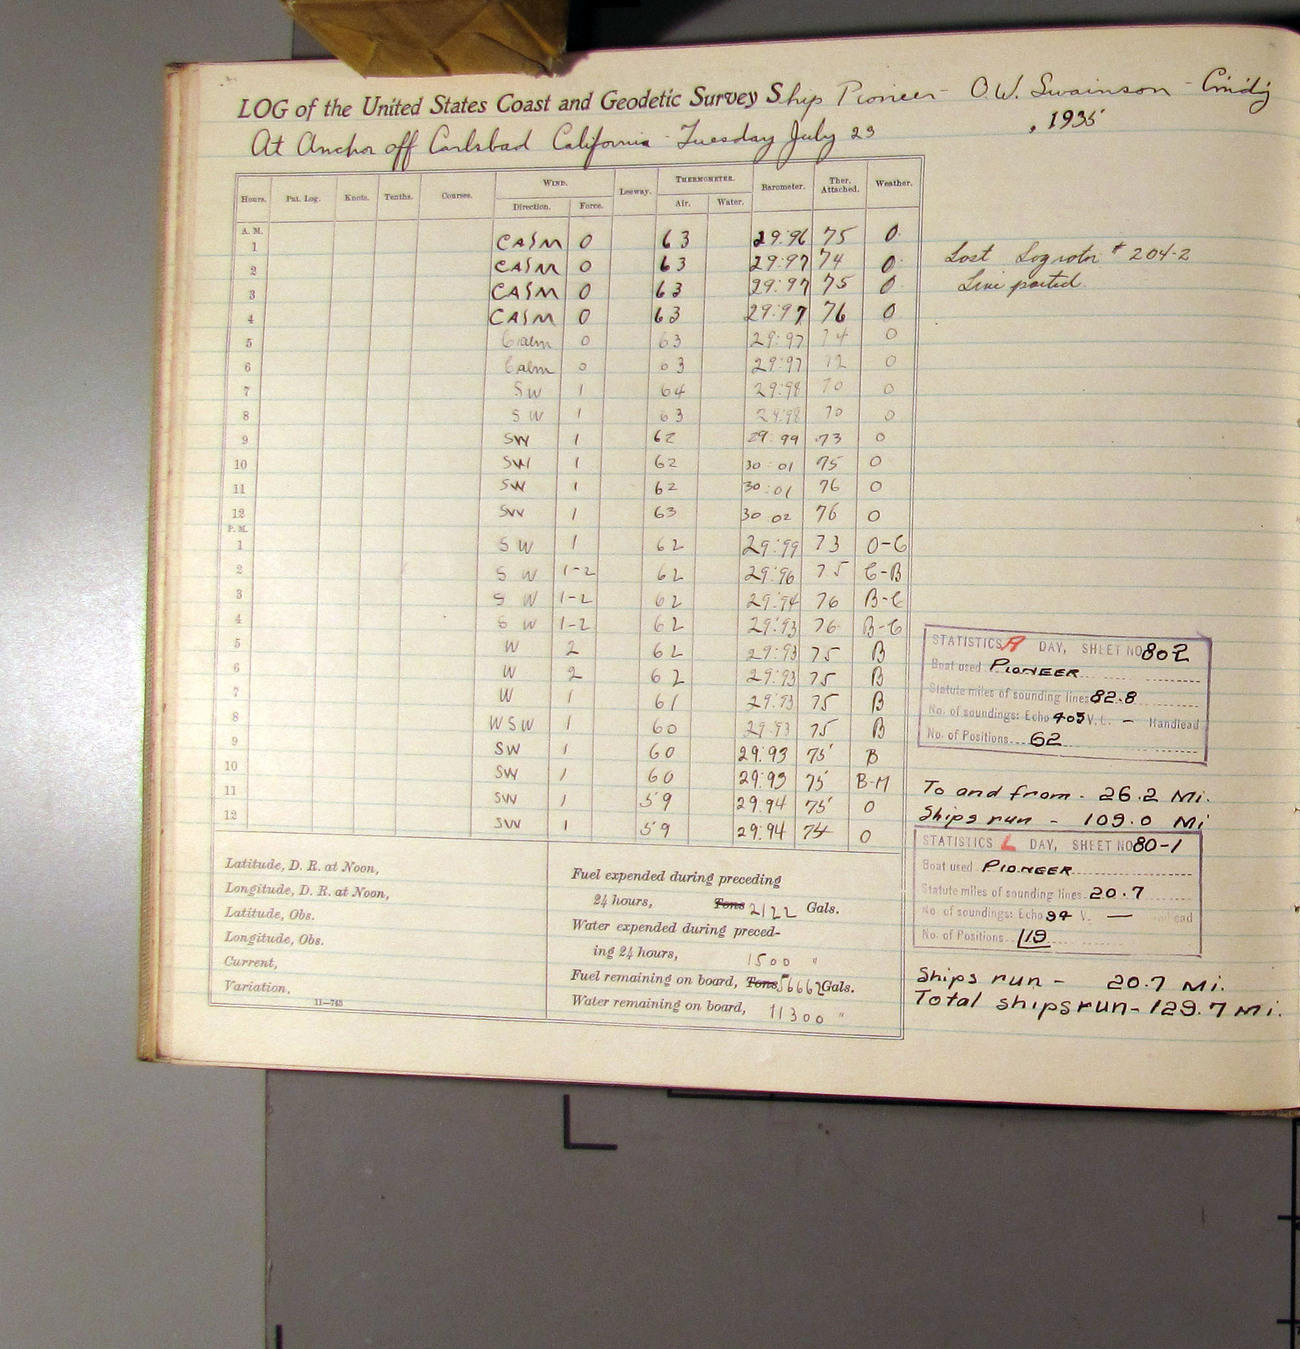 LOG of the United States Coast and Geodetic Survey Ship Pioneer - O.W. Swainson - Cmdg
At Anchor off Carlsbad California - Tuesday July 23, 1935
Hours. Pat. Log. Knots. Tenths. Courses. WIND. Leeway. THERMOMETER. Barometer. Ther. Attached. Weather.
Direction. Force. Air. Water.
A. M.
1 CALM 0 63 29:96 75 O
2 CALM 0 63 29:97 74 O
3 CALM 0 63 29:97 75 O
4 CALM 0 63 29:97 76 O
5 Calm 0 63 29:97 74 O
6 Calm 0 63 29:97 72 O
7 SW 1 64 29:98 70 O
8 SW 1 63 29.98 70 O
9 SW 1 62 29:99 73 O
10 SW 1 62 30:01 75 O
11 SW 1 62 30:01 76 O
12 SW 1 63 30 02 76 O
P. M.
1 SW 1 62 29:99 73 O-C
2 SW 1-2 62 29:96 75 C-B
3 SW 1-2 62 29:94 76 B-C
4 SW 1-2 62 29:93 76 B-C
5 W 2 62 29:93 75 B
6 W 2 62 29:93 75 B
7 W 1 61 29:93 75 B
8 WSW 1 60 29:93 75 B
9 SW 1 60 29:93 75 B
10 SW 1 60 29:93 75 B-M
11 SW 1 59 29.94 75 O
12 SW 1 59 29:94 74 O
Latitude, D. R. at Noon,
Longitude, D. R. at Noon,
Latitude, Obs.
Longitude, Obs.
Current,
Variation,
11—763
Fuel expended during preceding
24 hours, Tons 2122 Gals.
Water expended during preced-
ing 24 hours, 1500 "
Fuel remaining on board, Tons 56662 Gals.
Water remaining on board, 11300 "
Lost Log rotor # 204-2
Line parted.
STATISTICS A DAY, SHEET NO 802
Boat used PIONEER
Statute miles of sounding lines 82.8
No. of soundings: Echo 403 V.C. — Handlead
No. of Positions 62
To and from - 26.2 Mi.
Ships run - 109.0 Mi
STATISTICS L DAY, SHEET NO 80-1
Boat used PIONEER
Statute miles of sounding lines 20.7
No. of soundings: Echo 94 V. —
No. of Positions 119
Ships run - 20.7 Mi.
Total ships run - 129.7 Mi.